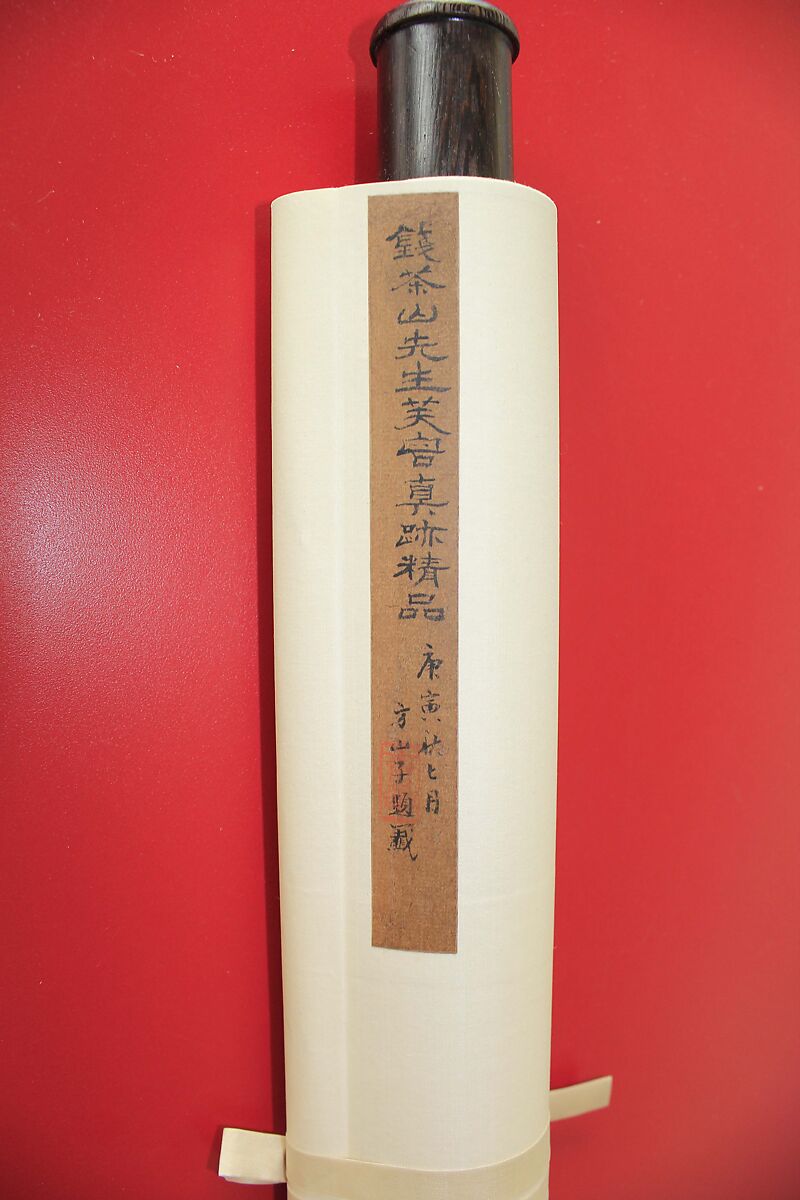 錢茶山先生芙容真跡精品
庚寅秋七月
方山子題籤